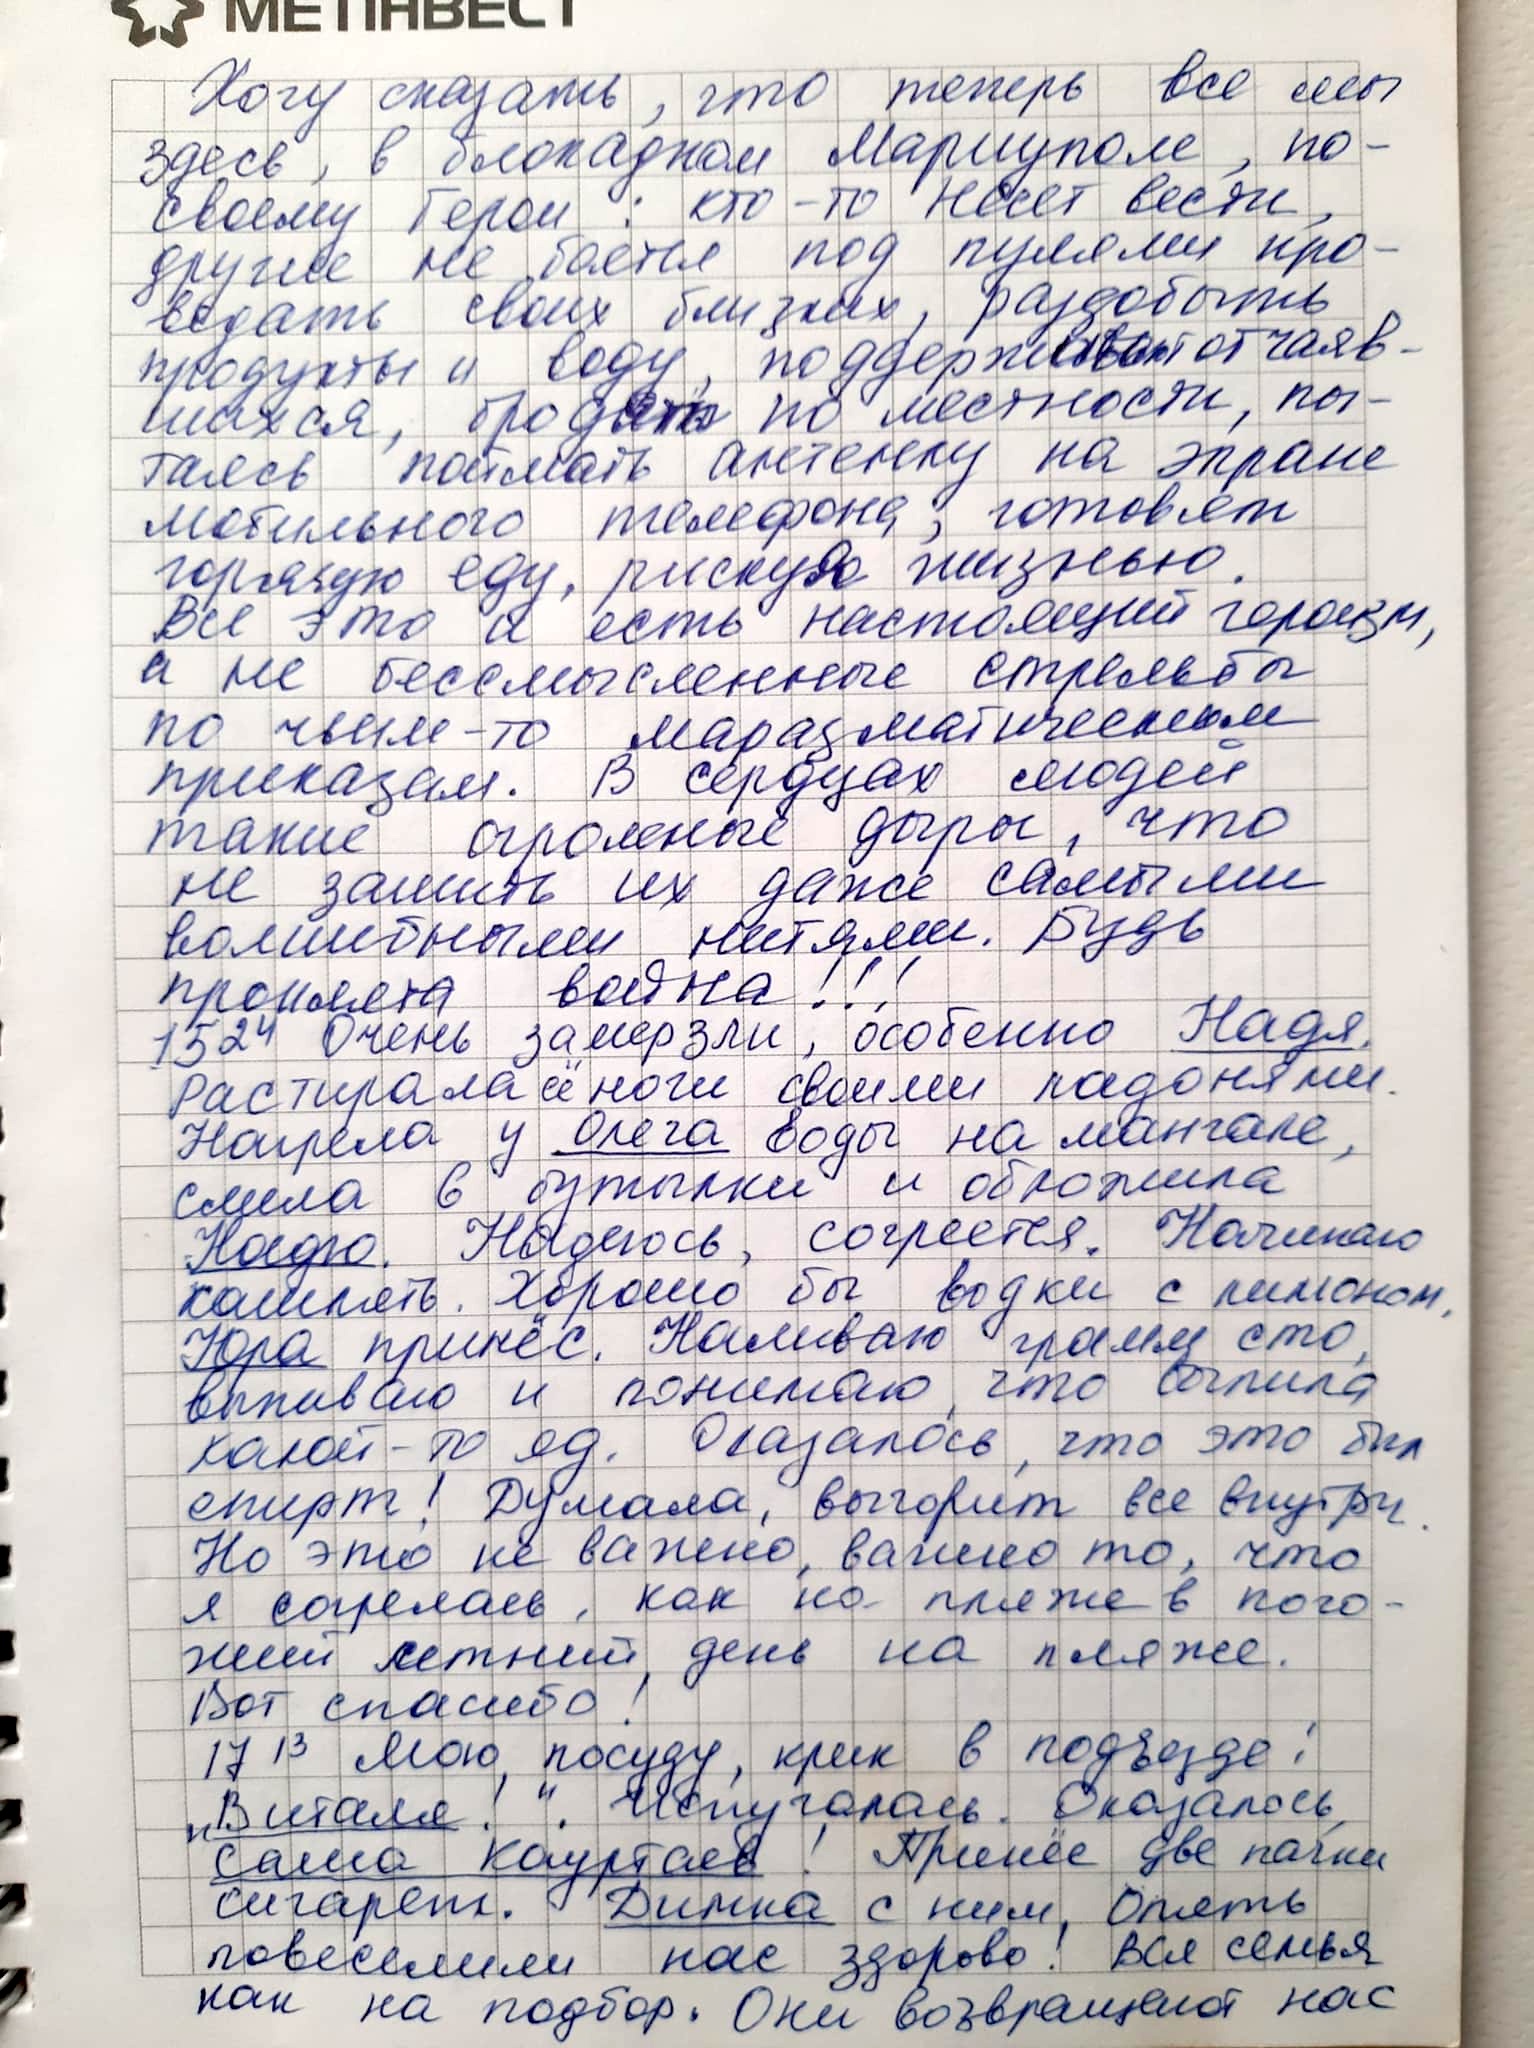 МЕТІНВЕСТ
Хочу сказать, что теперь все мы
здесь, в блокадном Мариуполе, по-
своему герои: кто-то несет вести,
другие не боятся под пулями про-
ведать своих близких, раздобыть
продукты и воду, поддерживают отчаяв-
шихся, бродят по местности, пы-
таясь поймать антенку на экране
мобильного телефона, готовят
горячую еду, рискуя жизнью.
Все это и есть настоящий героизм,
а не бессмысленные стрельбы
по чьим-то маразматическим
приказам. В сердцах людей
такие огромные дыры, что
не зашить их даже самыми
волшебными нитями. Будь
проклята война!!!
15 24 Очень замерзли, особенно Надя.
Растирала её ноги своими ладонями.
Нагрела у Олега воды на мангале,
слила в бутылки и обложила
Надю. Надеюсь, согреется. Начинаю
кашлять. Хорошо бы водки с лимоном,
Юра принёс. Наливаю грамм сто,
выпиваю и понимаю, что выпила
какой-то яд. Оказалось, что это был
спирт! Думала, выгорит все внутри.
Но это не важно, важно то, что
я согрелась, как на пляже в пого-
жий летний день на пляже.
Вот спасибо!
17 13 Мою посуду, крик в подъезде:
"Виталя!". Испугалась. Оказалось,
Саша Кауртаев! Принёс две пачки
сигарет. Димка с ним, Опять
повеселили нас здорово! Вся семья
как на подбор. Они возвращают нас